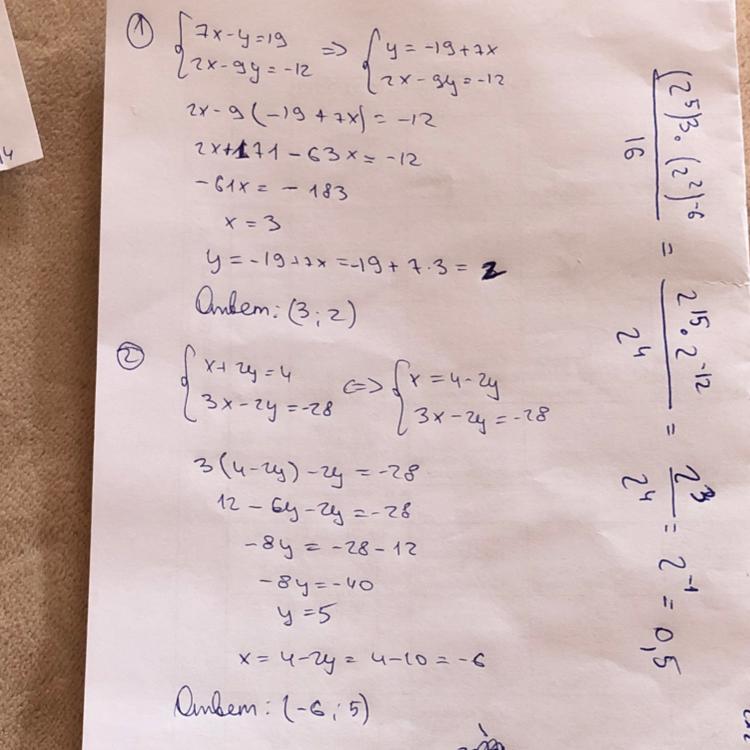 ① { 7x-y=19 => { y=-19+7x
2x-9y=-12 2x-9y=-12
2x-9(-19+7x)=-12
2x+171-63x=-12
-61x=-183
x=3
y=-19+7x=-19+7·3=2
Ответ: (3; 2)
② { x+2y=4 <=> { x=4-2y
3x-2y=-28 3x-2y=-28
3(4-2y)-2y=-28
12-6y-2y=-28
-8y=-28-12
-8y=-40
y=5
x=4-2y=4-10=-6
Ответ: (-6; 5)
(2⁵)³·(2²)⁻⁶/16 = 2¹⁵·2⁻¹²/2⁴ = 2³/2⁴ = 2⁻¹ = 0,5